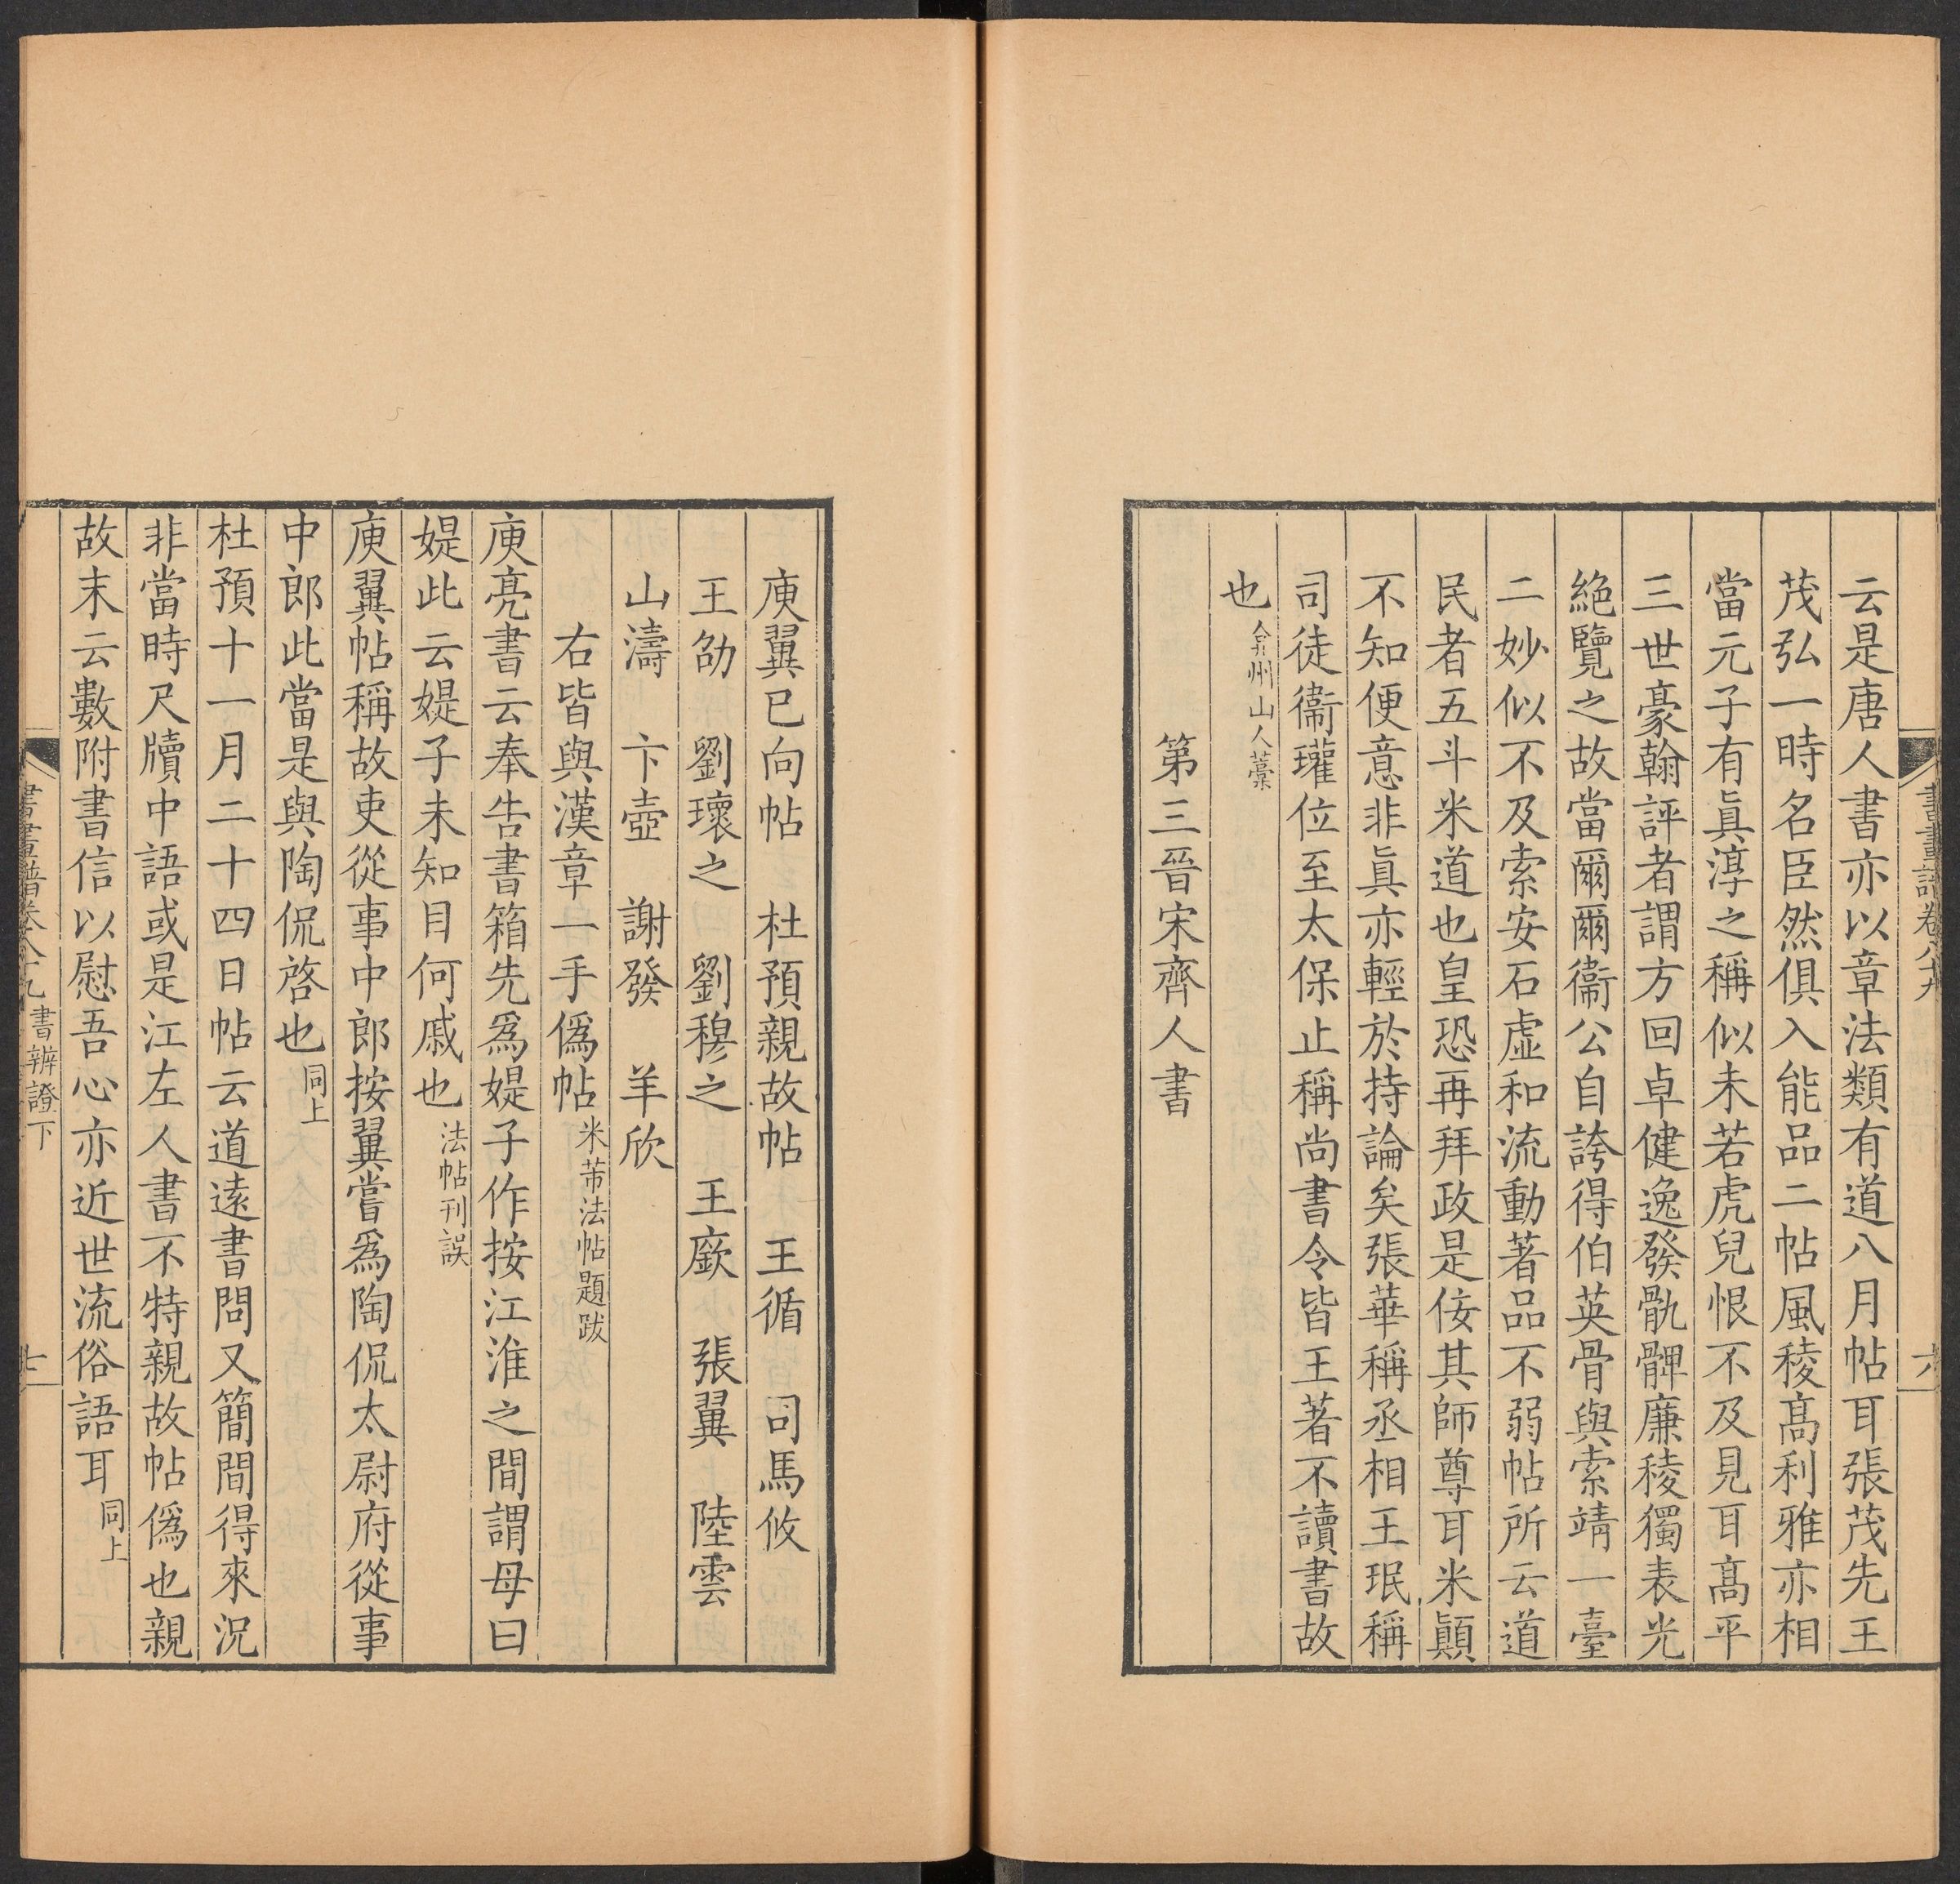 書畫譜卷八十九
六
云是唐人書亦以章法類有道八月帖耳張茂先王
茂弘一時名臣然俱入能品二帖風稜髙利雅亦相
當元子有眞淳之稱似未若虎兒恨不及見耳髙平
三世豪翰評者謂方回卓健逸發骩髀廉稜獨表光
絕覽之故當爾爾衞公自誇得伯英骨與索靖一臺
二妙似不及索安石虛和流動著品不弱帖所云道
民者五斗米道也皇恐再拜政是侫其師尊耳米顚
不知便意非眞亦輕於持論矣張華稱丞相王珉稱
司徒衞瓘位至太保止稱尚書令皆王著不讀書故
也弇州山人藁
第三晉宋齊人書
庾翼已向帖 杜預親故帖 王循 司馬攸
王劭 劉瓌之 劉穆之 王廞 張翼 陸雲
山濤 卞壺 謝發 羊欣
右皆與漢章一手僞帖米芾法帖題跋
庾亮書云奉告書箱先爲媞子作按江淮之間謂母曰
媞此云媞子未知目何戚也法帖刊誤
庾翼帖稱故吏從事中郎按翼嘗爲陶侃太尉府從事
中郎此當是與陶侃啓也同上
杜預十一月二十四日帖云道遠書問又簡間得來況
非當時尺牘中語或是江左人書不特親故帖僞也親
故末云數附書信以慰吾心亦近世流俗語耳同上
書畫譜卷八十九 書辨證下
七